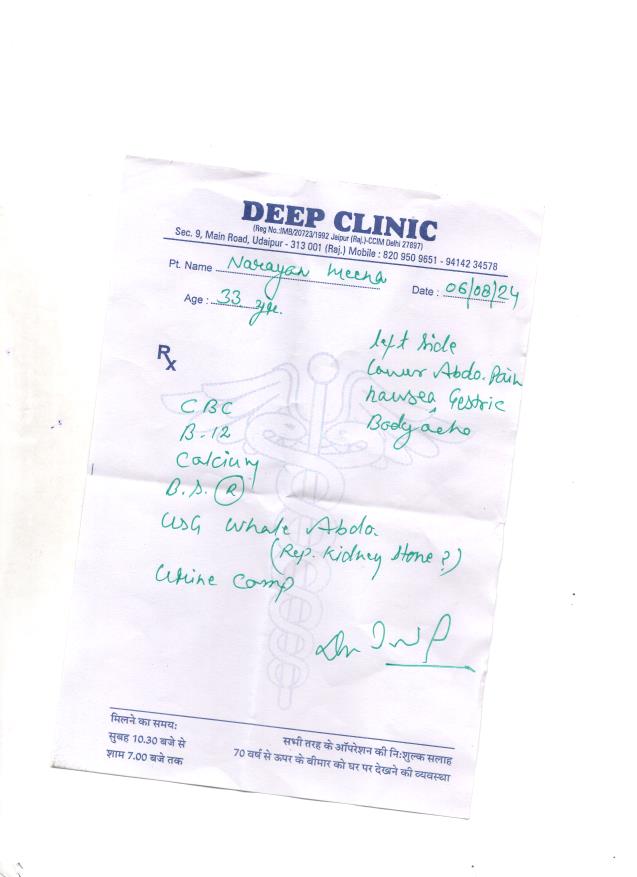 DEEP CLINIC
(Reg No.:IMB/20723/1992 Jaipur (Raj.)-CCIM Delhi 27897)
Sec. 9, Main Road, Udaipur - 313 001 (Raj.) Mobile : 820 950 9651 - 94142 34578
Pt. Name Narayan Meena Date : 06/08/24
Age : 33 yr.
left side
Lower Abdo. Pain
nausea, Gestric
Body ache
Rx
CBC
B-12
Calcium
B.S. (R)
USG Whole Abdo.
(Rep. Kidney Stone ?)
Urine Comp
Dr
मिलने का समय:
सुबह 10.30 बजे से
शाम 7.00 बजे तक
सभी तरह के ऑपरेशन की नि:शुल्क सलाह
70 वर्ष से ऊपर के बीमार को घर पर देखने की व्यवस्था